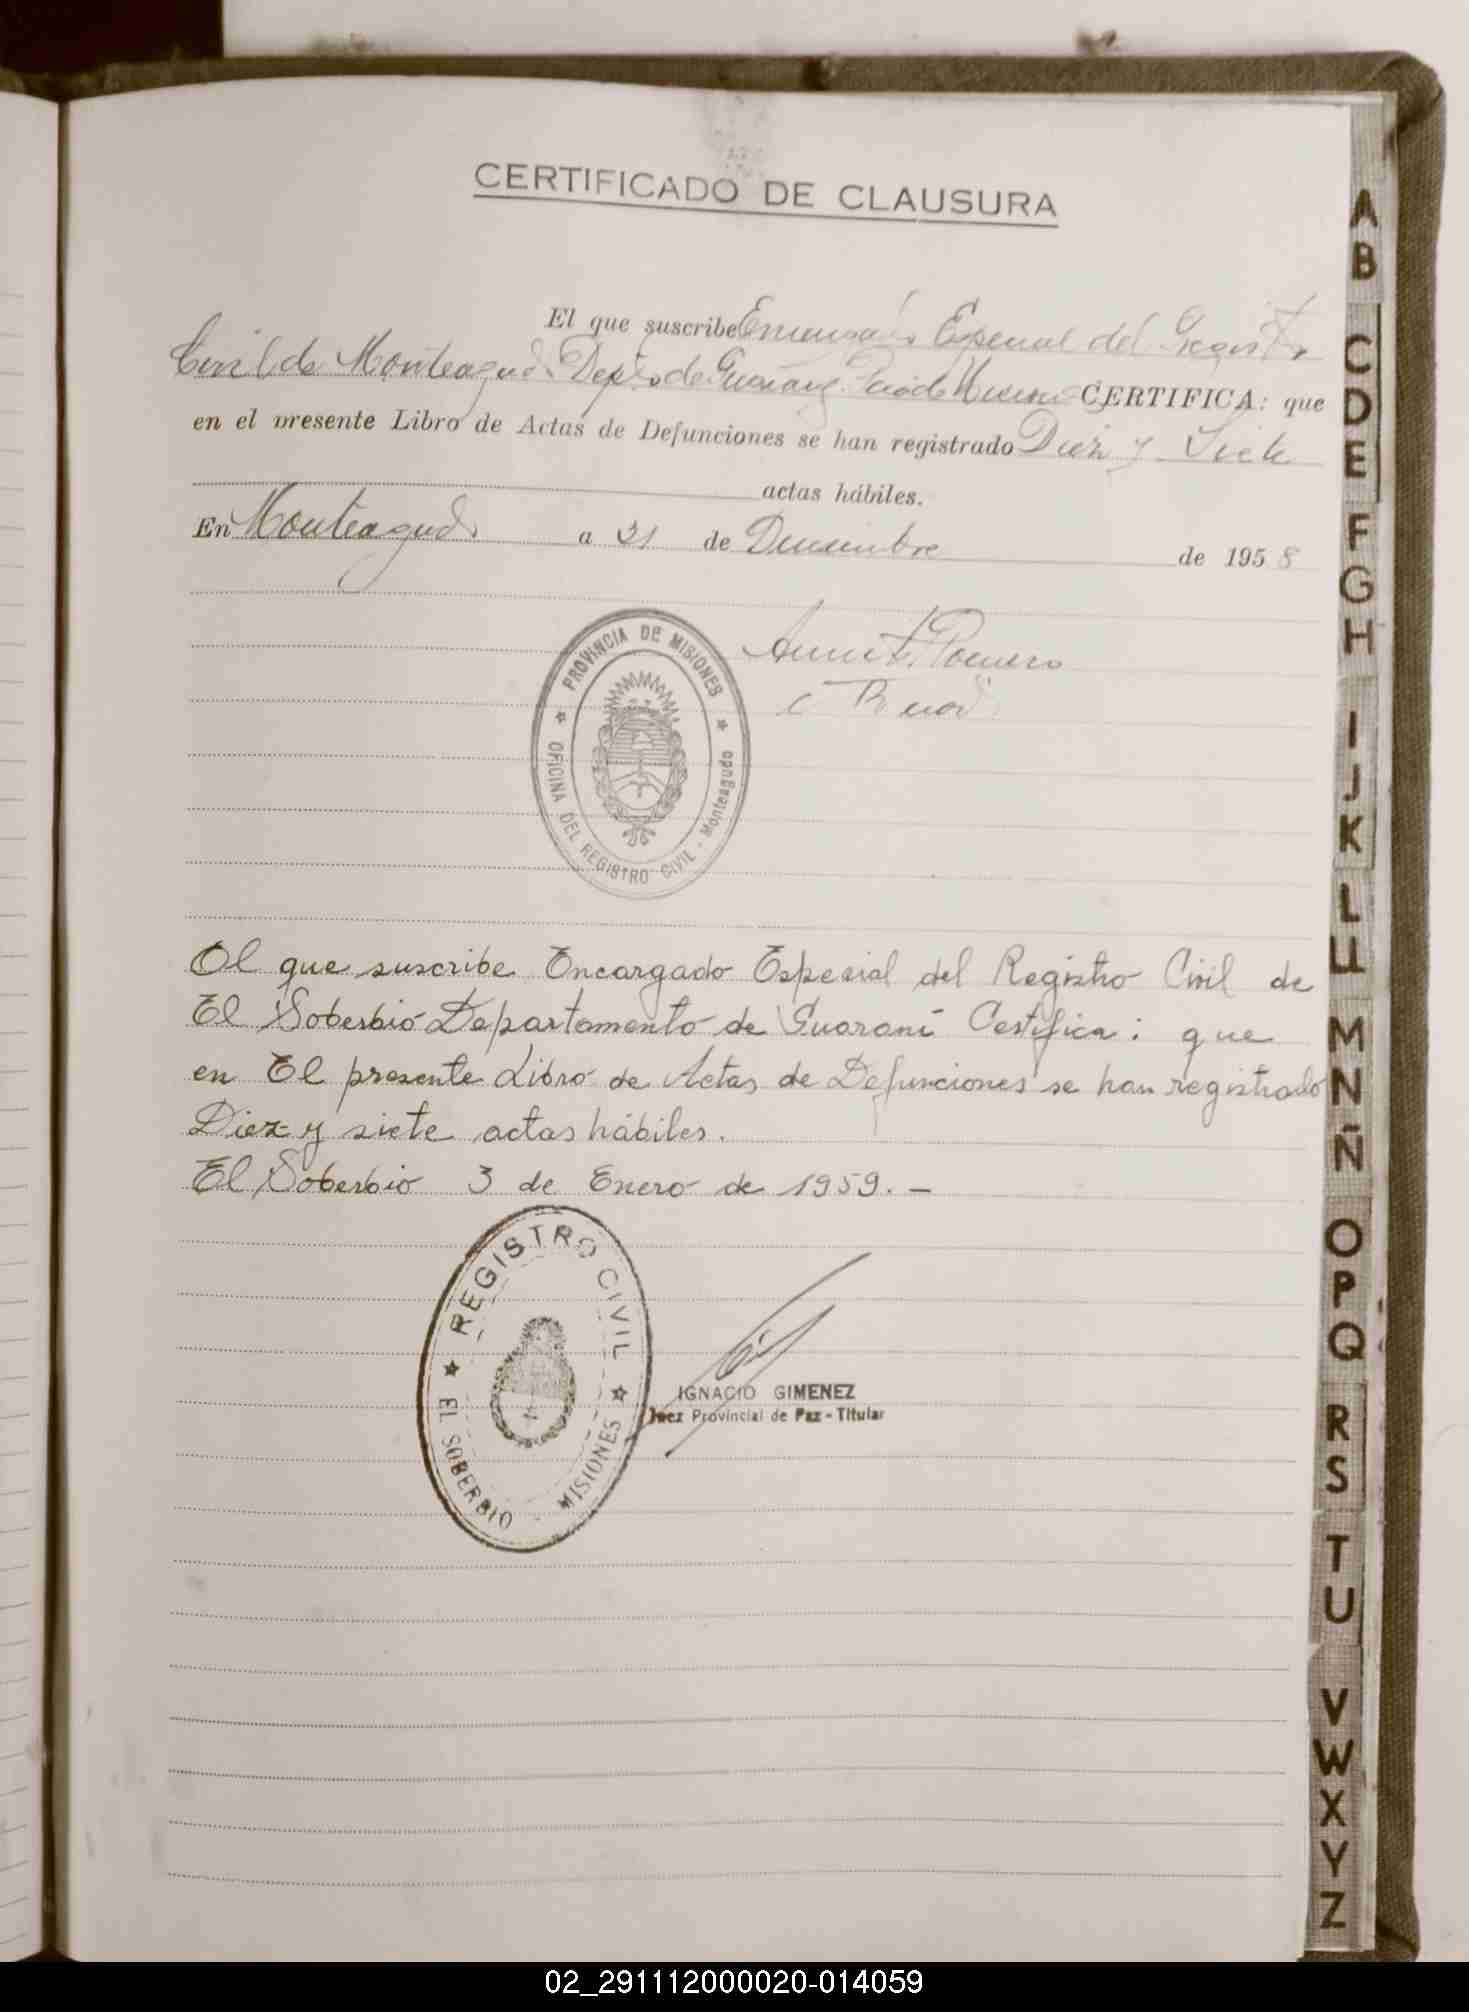 CERTIFICADO DE CLAUSURA
El que suscribe Especial del
Civil de Monteagudo CERTIFICA: que
en el presente Libro de Actas de Defunciones se han registrado Diez y Siete
actas hábiles.
En Monteagudo a 31 de Diciembre de 1958
Romero
PROVINCIA DE MISIONES
OFICINA DEL REGISTRO CIVIL - Monteagudo
El que suscribe Encargado Especial del Registro Civil de
El Soberbio Departamento de Guaraní Certifica: que
en El presente Libro de Actas de Defunciones se han registrado
Diez y siete actas hábiles.
El Soberbio 3 de Enero de 1959. -
REGISTRO CIVIL
EL SOBERBIO - MISIONES
IGNACIO GIMENEZ
Juez Provincial de Paz - Titular
A
B
C
D
E
F
G
H
I
J
K
L
LL
M
N
Ñ
O
P
Q
R
S
T
U
V
W
X
Y
Z
02_291112000020-014059